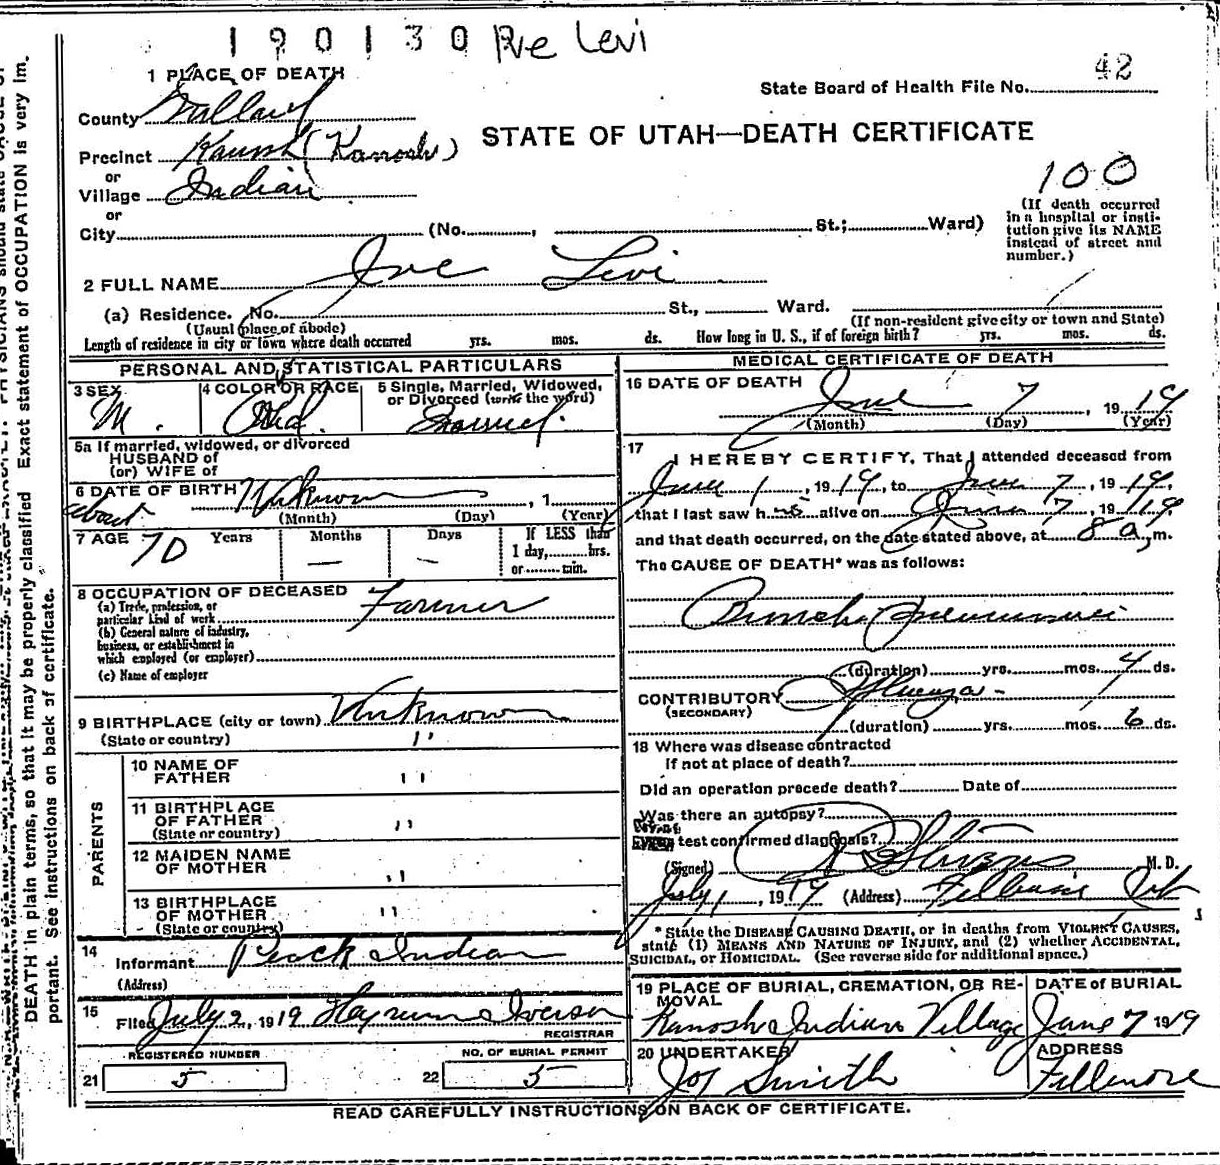 190130 Joe Levi
1 PLACE OF DEATH
State Board of Health File No. 42
County Millard
STATE OF UTAH—DEATH CERTIFICATE
Precinct Kanosh (Kanosh)
or
Village Indian
or
100
City (No. , St.; Ward)
(If death occurred in a hospital or institution give its NAME instead of street and number.)
2 FULL NAME Joe Levi
(a) Residence. No. St., Ward.
(Usual place of abode) (If non-resident give city or town and State)
Length of residence in city or town where death occurred yrs. mos. ds. How long in U. S., if of foreign birth? yrs. mos. ds.
PERSONAL AND STATISTICAL PARTICULARS
3 SEX M. 4 COLOR OR RACE 5 Single, Married, Widowed, or Divorced (write the word)
5a If married, widowed, or divorced
HUSBAND of
(or) WIFE of
6 DATE OF BIRTH Unknown , 1
about (Month) (Day) (Year)
7 AGE 70 Years Months — Days — If LESS than
1 day, hrs.
or min.
8 OCCUPATION OF DECEASED Farmer
(a) Trade, profession, or
particular kind of work
(b) General nature of industry,
business, or establishment in
which employed (or employer)
(c) Name of employer
9 BIRTHPLACE (city or town) Unknown
(State or country) "
PARENTS
10 NAME OF FATHER "
11 BIRTHPLACE OF FATHER "
(State or country)
12 MAIDEN NAME OF MOTHER "
13 BIRTHPLACE OF MOTHER "
(State or country)
14
Informant Indian
(Address)
15
Filed July 2, 1919 Iverson
REGISTRAR
REGISTERED NUMBER NO. OF BURIAL PERMIT
21 5 22 5
MEDICAL CERTIFICATE OF DEATH
16 DATE OF DEATH June 7 , 1919
(Month) (Day) (Year)
17
I HEREBY CERTIFY, That I attended deceased from
June 1 , 1919, to June 7 , 1919,
that I last saw h alive on June 7 , 1919
and that death occurred, on the date stated above, at 8 a, m.
The CAUSE OF DEATH* was as follows:
Broncho Pneumonia
(duration) yrs. mos. 4 ds.
CONTRIBUTORY Influenza -
(SECONDARY)
(duration) yrs. mos. 6 ds.
18 Where was disease contracted
if not at place of death?
Did an operation precede death? Date of
Was there an autopsy?
What test confirmed diagnosis?
(Signed) Stevens M. D.
July 1, 1919 (Address) Fillmore Utah
* State the DISEASE CAUSING DEATH, or in deaths from VIOLENT CAUSES,
state (1) MEANS AND NATURE OF INJURY, and (2) whether ACCIDENTAL,
SUICIDAL, or HOMICIDAL. (See reverse side for additional space.)
19 PLACE OF BURIAL, CREMATION, OR RE-
MOVAL
Kanosh Indian Village
DATE of BURIAL
June 7 1919
20 UNDERTAKER
Jos Smith
ADDRESS
Fillmore
READ CAREFULLY INSTRUCTIONS ON BACK OF CERTIFICATE.
DEATH in plain terms, so that it may be properly classified Exact statement of OCCUPATION is very im-
portant. See instructions on back of certificate.